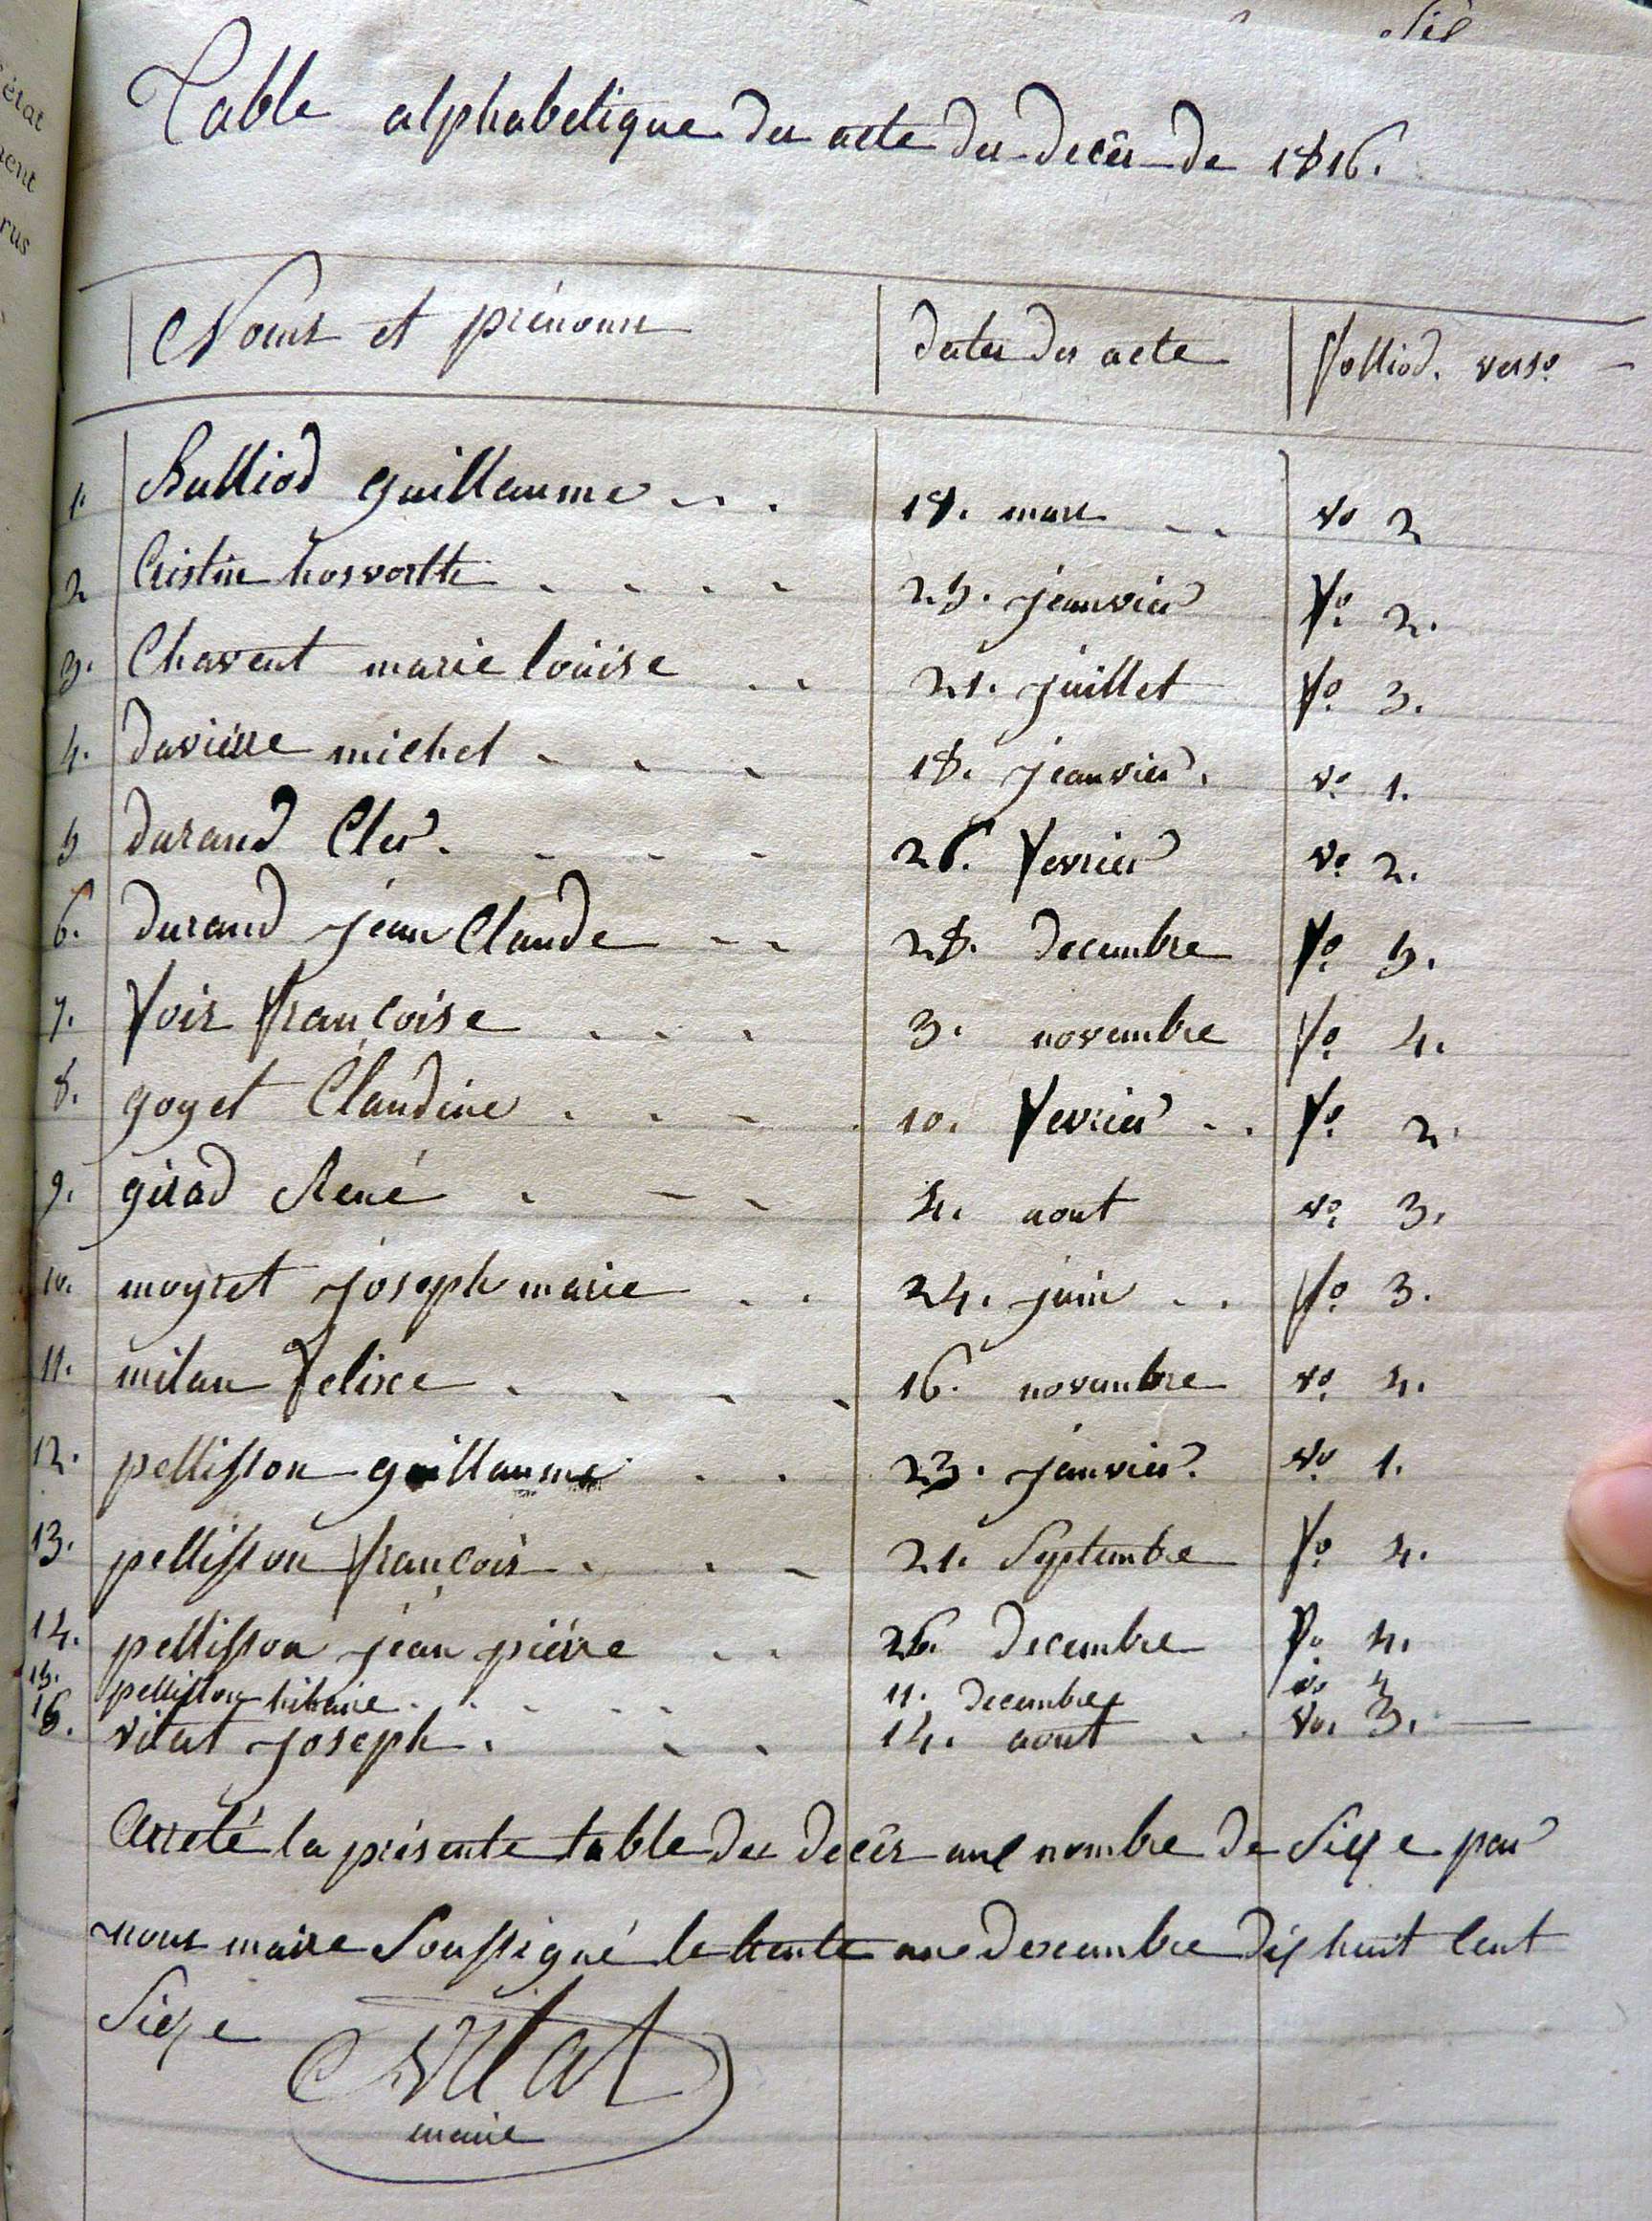 Table alphabetique des acte des decès de 1816.
Noms et prénoms dates des acte folliod. verso
1. Bulliod guillaume 18. mars vo 2
2 Cristin 25. jeanvier fo. 2.
3. Chavent marie louise 21. juillet fo. 3.
4. davierre michel 18. jeanvier. vo. 1.
5 durand Cler. 26. fevrier vo. 2.
6. durand jean Claude 28. decembre fo. 5.
7. foir françoise 3. novembre fo. 4.
8. goyet Claudine 10. fevrier fo. 2.
9. girad René 4. aout vo. 3.
10. moyret joseph marie 24. juin fo. 3.
11. milan felixe 16. novembre vo. 4.
12. pellisson guillaume 23. janvier. vo 1.
13. pellisson françois 21. Septembre fo 4.
14. pellisson jean pierre 26. decembre fo 4.
15. pellisson hilaire 11. decembre vo 4
16. vitat joseph 14. aout vo. 3.
arreté la présente table des decès aux nombre de Sieze par
nous maire Soussigné le trente une decembre dix huit Cent
Sieze
Vitat
maire